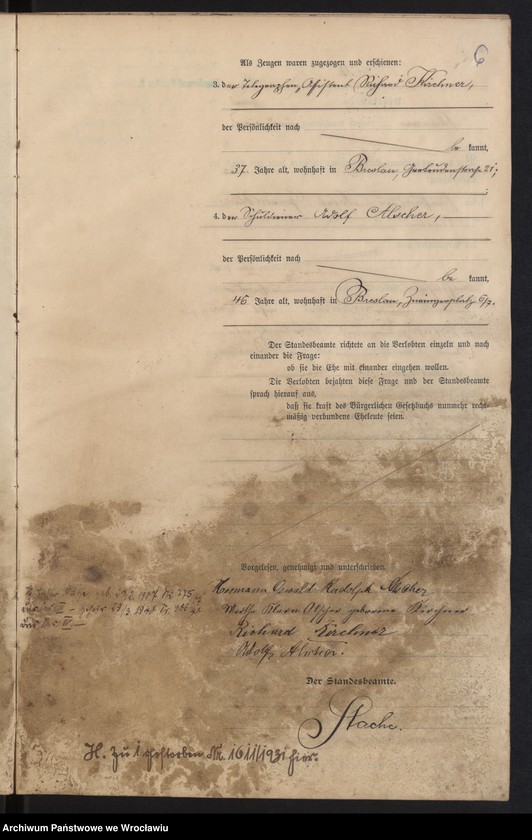 6
Als Zeugen waren zugezogen und erschienen:
3. der Telegraphen-Assistent Richard Kirchner,
der Persönlichkeit nach
be kannt,
37 Jahre alt, wohnhaft in Breslau, 21;
4. der Schuldiener Adolf Alscher,
der Persönlichkeit nach
be kannt,
46 Jahre alt, wohnhaft in Breslau, Zwingerplatz 6/7.
Der Standesbeamte richtete an die Verlobten einzeln und nach
einander die Frage:
ob sie die Ehe mit einander eingehen wollen.
Die Verlobten bejahten diese Frage und der Standesbeamte
sprach hierauf aus,
daß sie kraft des Bürgerlichen Gesetzbuchs nunmehr recht-
mäßig verbundene Eheleute seien.
Vorgelesen, genehmigt und unterschrieben.
Hermann Oswald Rudolph Alscher
Klara Alscher geborene Kirchner
Richard Kirchner
Adolf Alscher.
Der Standesbeamte.
Stache.
H. zu 1 gestorben Nr. 1611/1931 hier.
Archiwum Państwowe we Wrocławiu